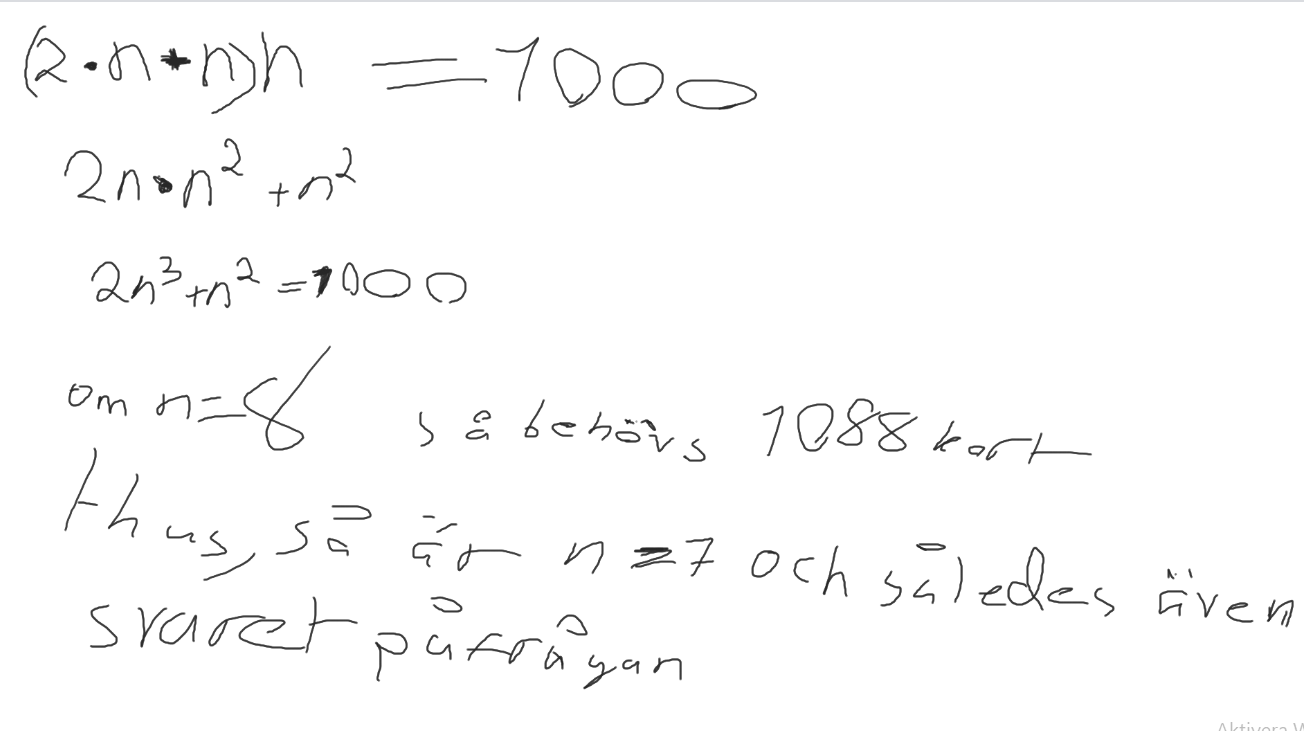 (2·n+n)n = 1000
2n·n² + n²
2n³+n² = 1000
om n=8 så behövs 1088 kort
thus, så är n=7 och således även
svaret på frågan
Aktivera W